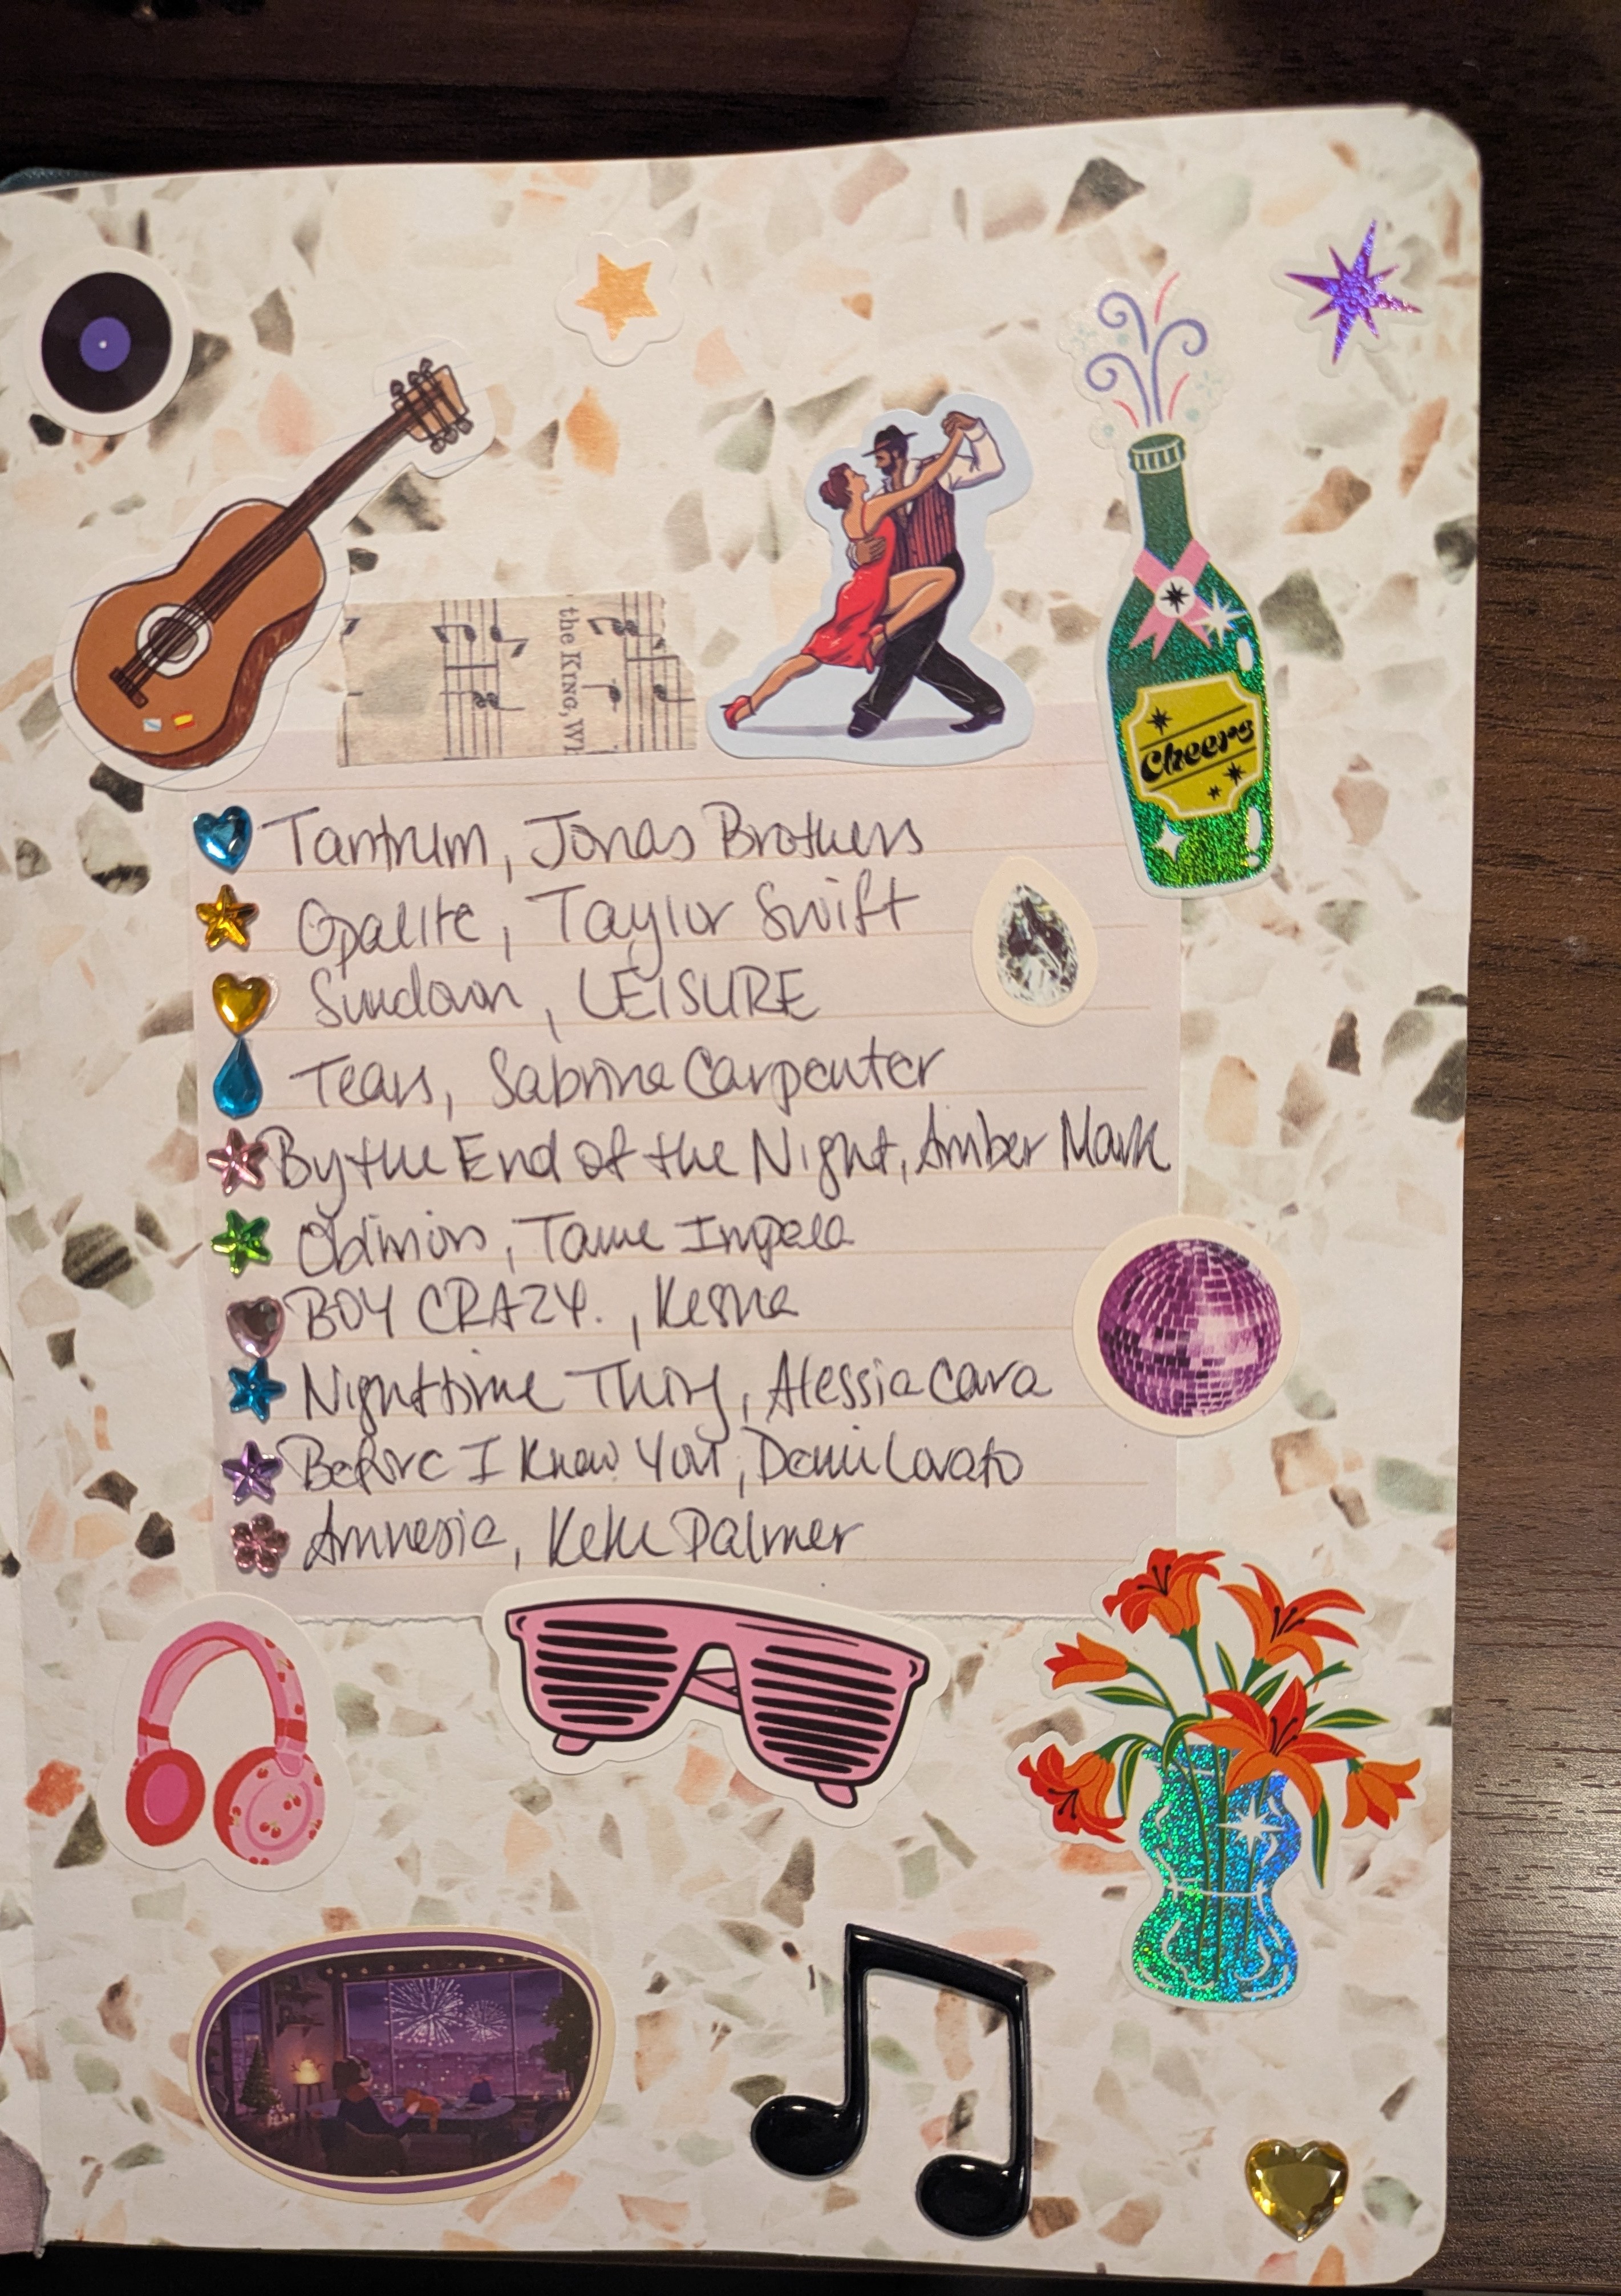 the KING, WI
Cheers
Tantrum, Jonas Brothers
Opalite, Taylor Swift
Sundown, LEISURE
Tears, Sabrina Carpenter
By the End of the Night, Amber Mark
Oblivion, Tame Impala
BOY CRAZY., Kesha
Nighttime Thing, Alessia Cara
Before I Knew You, Demi Lovato
Amnesia, Keke Palmer